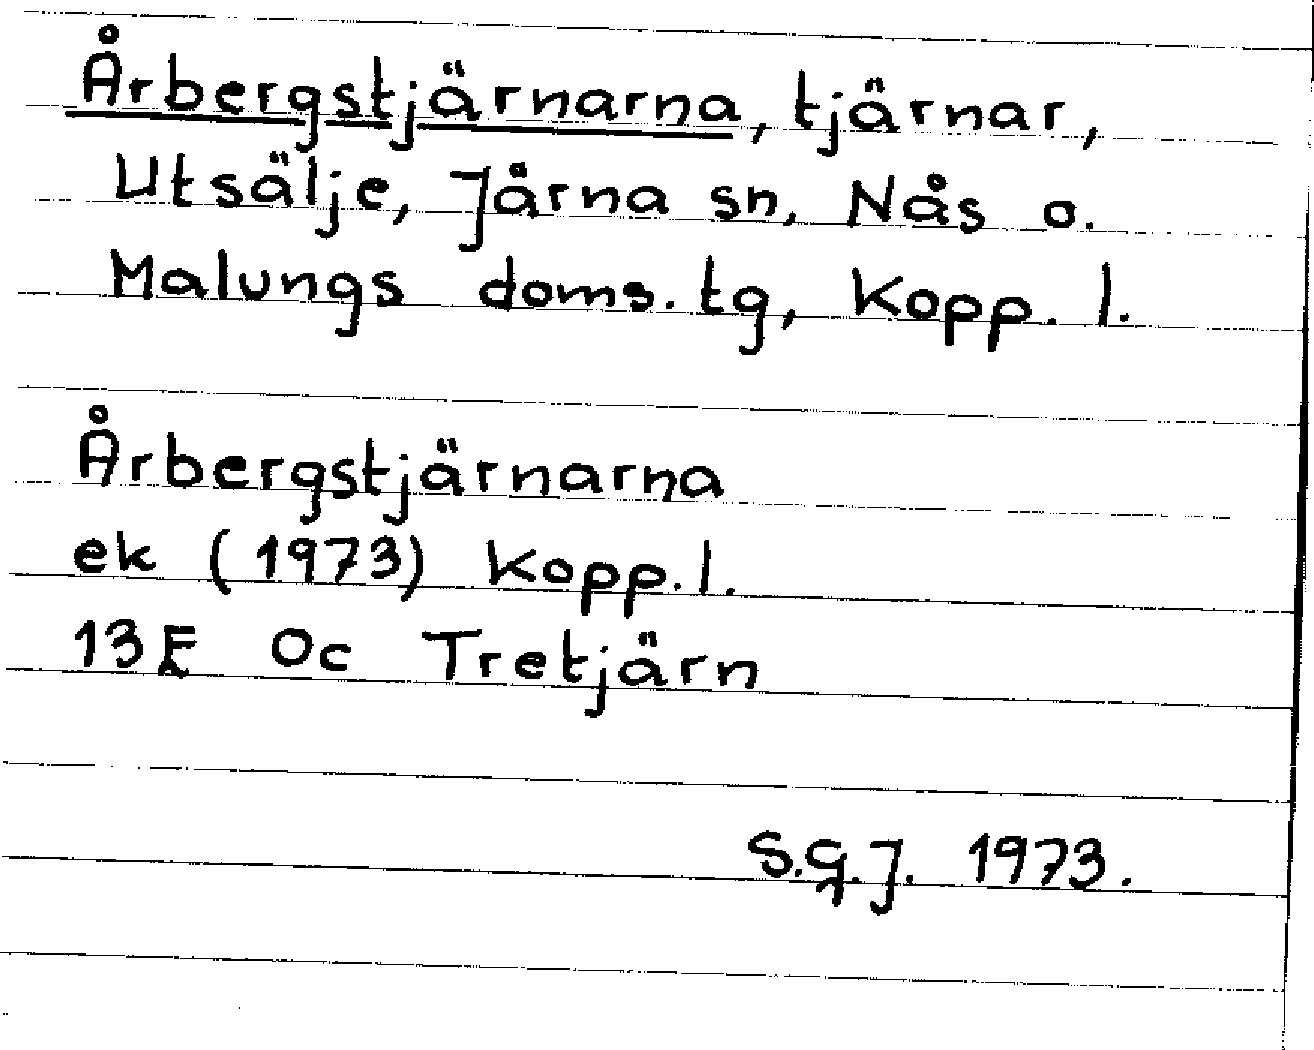 Årbergstjärnarna, tjärnar,
Utsälje, Järna sn, Nås o.
Malungs doms.tg, Kopp. l.
Årbergstjärnarna
ek (1973) Kopp.l.
13E 0c Tretjärn
S.G.J. 1973.